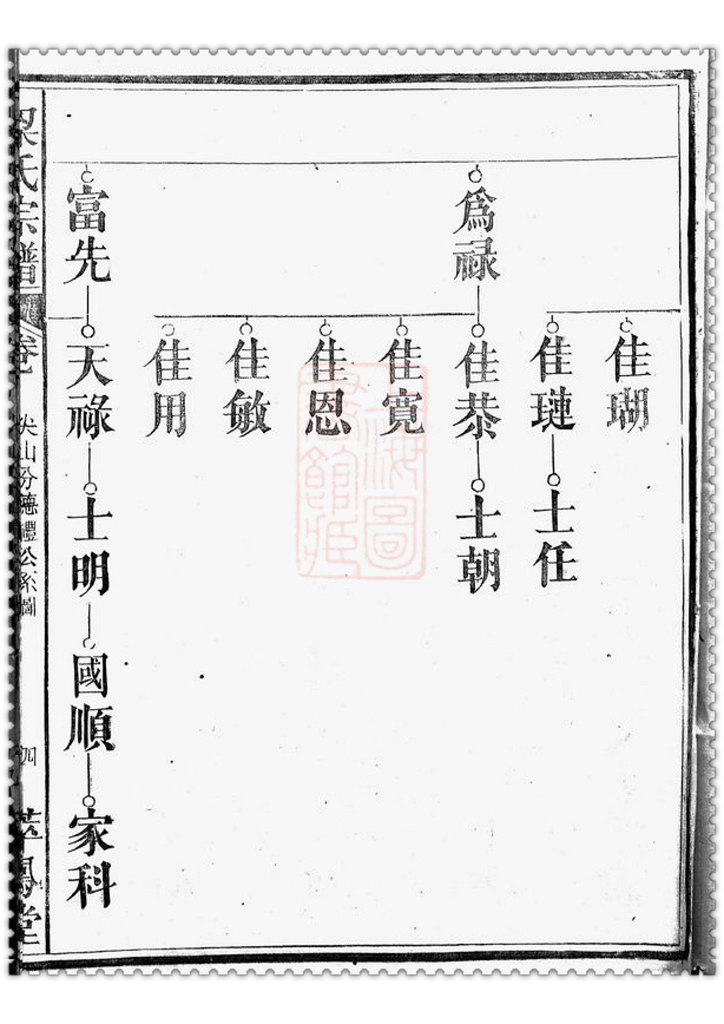 佳瑚
佳璉
士任
爲祿
佳恭
士朝
佳寬
佳恩
佳敏
佳用
富先
天祿
士明
國順
家科
梁氏宗譜
卷
尖山分德禮公系圖